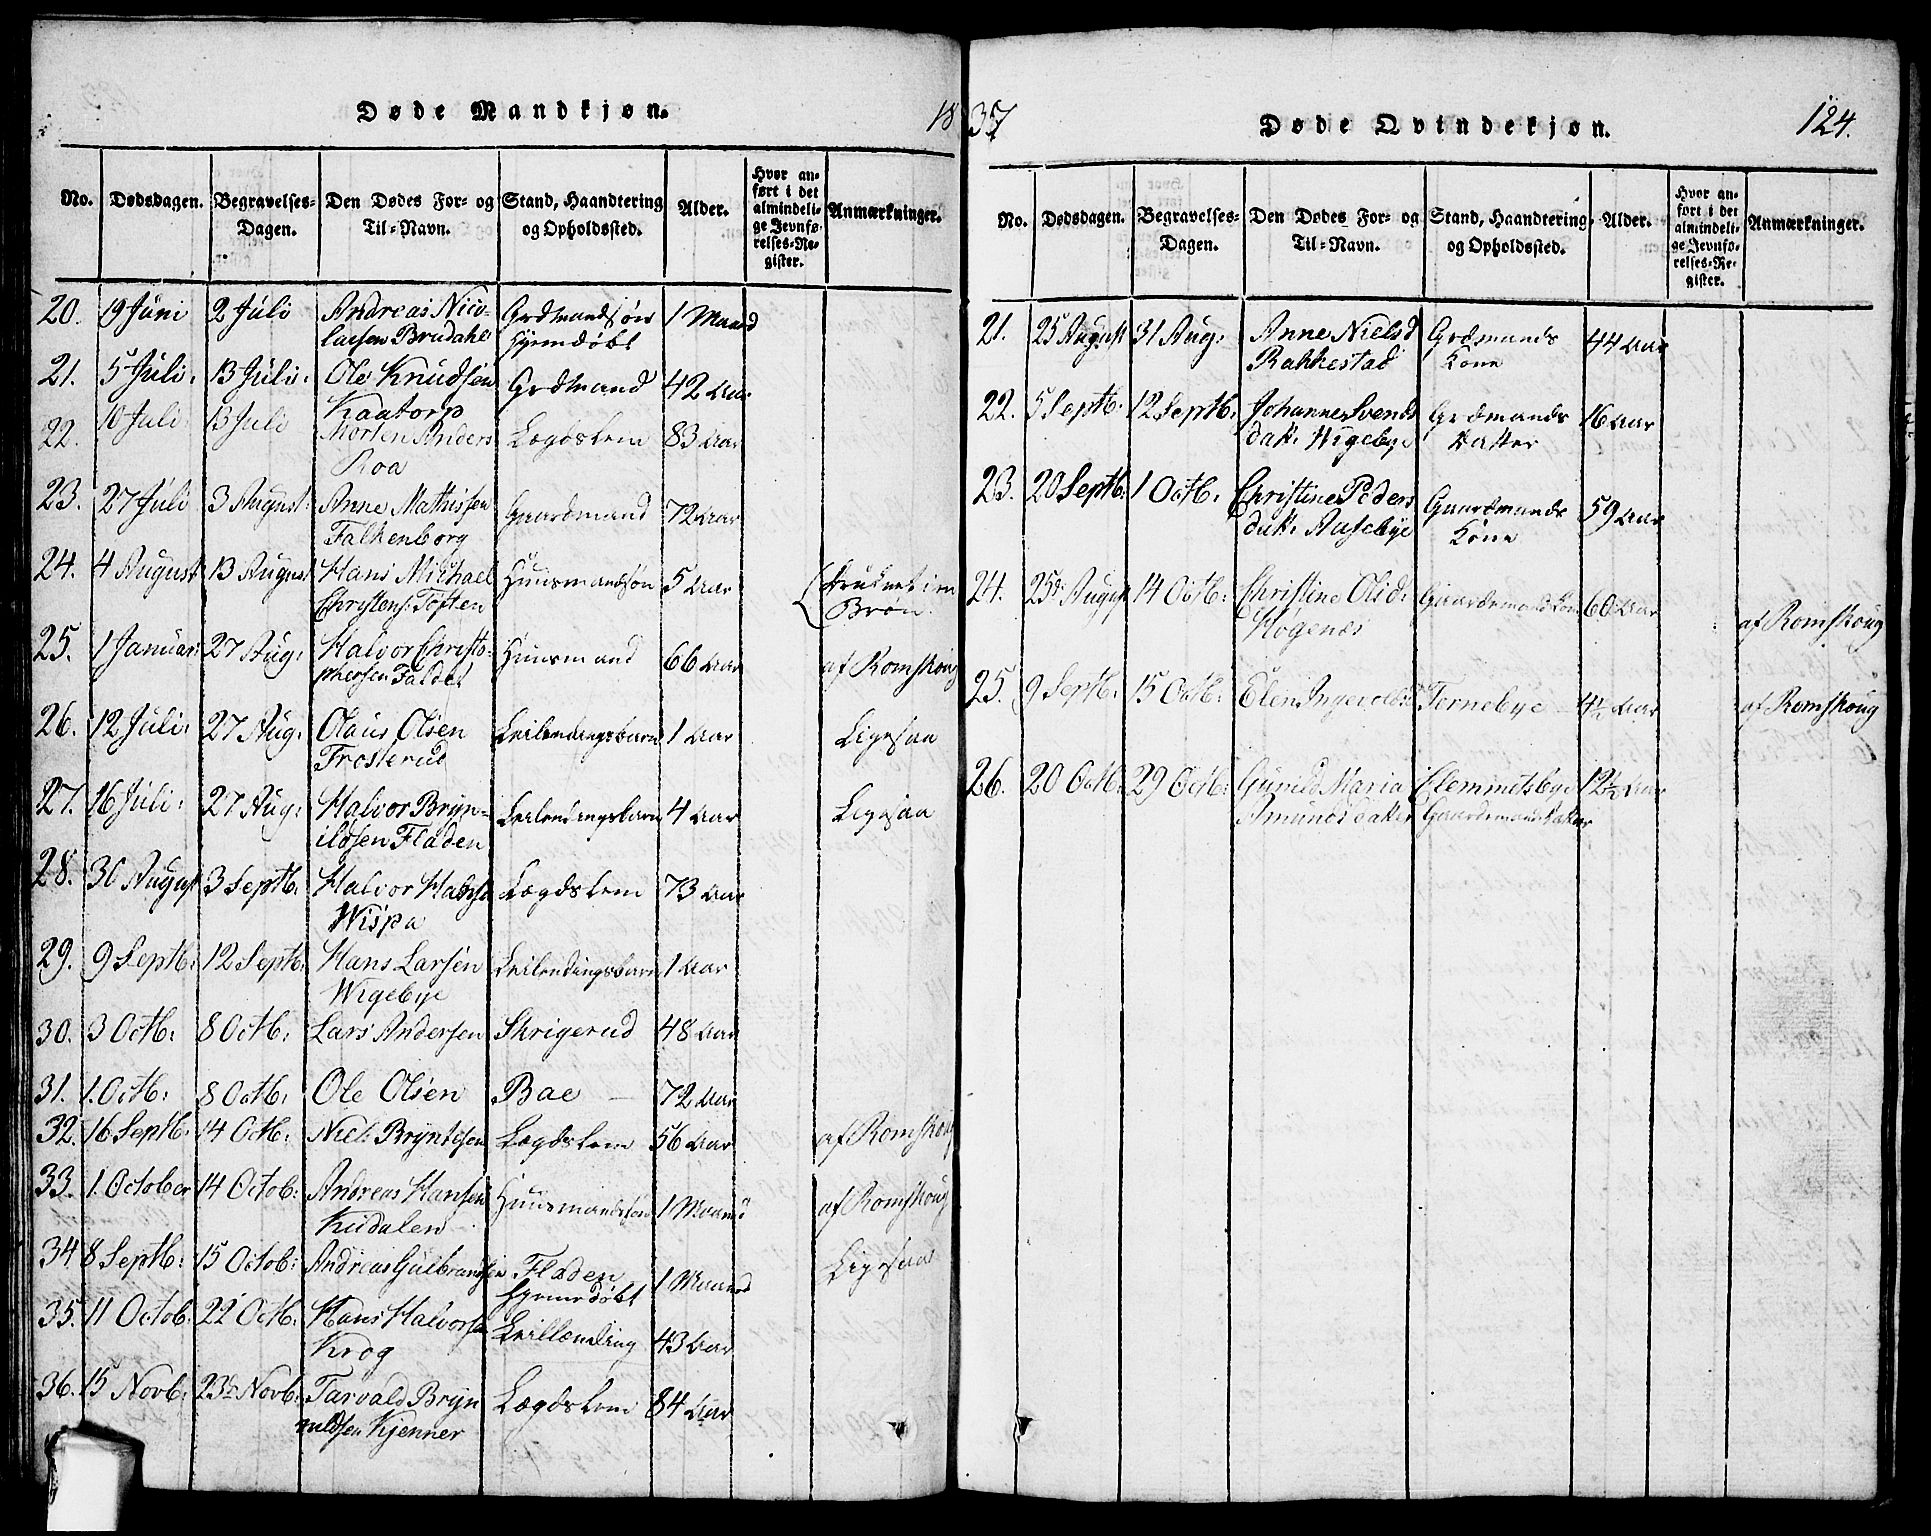 Døde Mandkjøn.
1837
No. Dødsdagen. Begravelses-Dagen. Den Dødes For- og Til-Navn. Stand, Haandtering og Opholdssted. Alder. Hvor anført i det almindelige Jevnførelses-Register. Anmærkninger.
20. 19 Juni 2 Juli Andreas Nico- Grdmandsøn 1 Maaned
larsen Brudahl hjemdøbt
21. 5 Juli. 13 Juli. Ole Knudsen Grdmand 42 Aar
Kaatorp
22. 10 Juli. 13 Juli Morten Anders Lægdslem 83 Aar
Roa
23. 27 Juli 3 August. Arne Mathisen Gaardmand 72 Aar
Falkenborg
24. 4 August 13 August Hans Michael Huusmandsøn 5 Aar druknet i en
Christens: Toften Brøn.
25. 1 Januar: 27 Aug: Halvor Christo- Huusmand 66 Aar af Romskoug
phersen Faldet
26. 12 Juli: 27 Aug: Olaus Olsen Leilendingsbarn 1 Aar Ligesaa
Trosterud
27. 16 Juli: 27 Aug: Halvor Bryn- Leilendingsbarn 4 Aar Ligesaa
ildsen Fladen
28. 30 August 3 Septb. Halvor Halvors Lægdslem 73 Aar
Wispa
29. 9 Septb: 12 Septb: Hans Larsen Leilendingsbarn 1 Aar
Wigebye
30. 3 Octb: 8 Octb: Lars Andersen Skrigerud 48 Aar
31. 1. Octb: 8 Octb: Ole Olsen Bae 72 Aar
32. 16 Septb: 14 Octb: Niels Bryntesen Lægdslem 56 Aar af Romskoug
33. 1. October 14 Octob: Andreas Hansen Huusmandsøn 1 Maaned af Romskoug
Kudalen
34 8 Septb: 15 Octob: Andreas Gulbrandsen Fladen 1 Maaned Ligesaa
hjemedøbt
35. 11 Octob: 22 Octb. Hans Halvorsen Leillænding 43 Aar
Krog
36. 15 Novb: 23de Novb: Tarvald Bryn Lægdslem 84 Aar
nildsen Kjenner
Døde Qvindekjøn.
124.
No. Dødsdagen. Begravelses-Dagen. Den Dødes For- og Til-Navn. Stand, Haandtering og Opholdssted. Alder. Hvor anført i det almindelige Jevnførelses-Register. Anmærkninger.
21. 25 August 31 Aug: Anne Nielsd Grdmands 44 Aar
Rakkestad Kone
22. 5 Septb. 12 Septb: Johanne Svends Grdmands 16 Aar
dat: Wigebye datter
23. 20 Septb: 1 Octb: Christine Peders Gaardmands 59 Aar
dat: Ausebye Kone
24. 25de August 14 Octb: Christine Olsd: Gaardmandkone 60 Aar af Romskoug
Hogenæs
25. 9 Septb: 15 Octb: Elen Ingevalds Ternebye 4½ Aar af Romskoug
26. 20 Octb: 29 Octb: Gunild Maria Clemmetsbye 12½ Aar
Amundsdatter Gaardmandsdatter